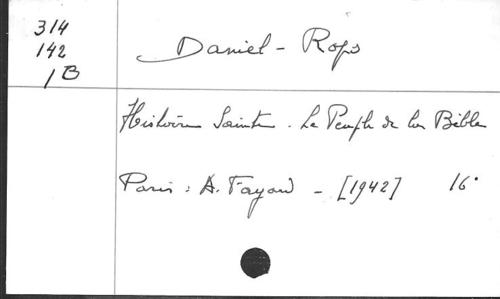 314
142
1B
Daniel-Rops
Histoire Sainte. Le Peuple de la Bible
Paris : A. Fayard - [1942] 16°